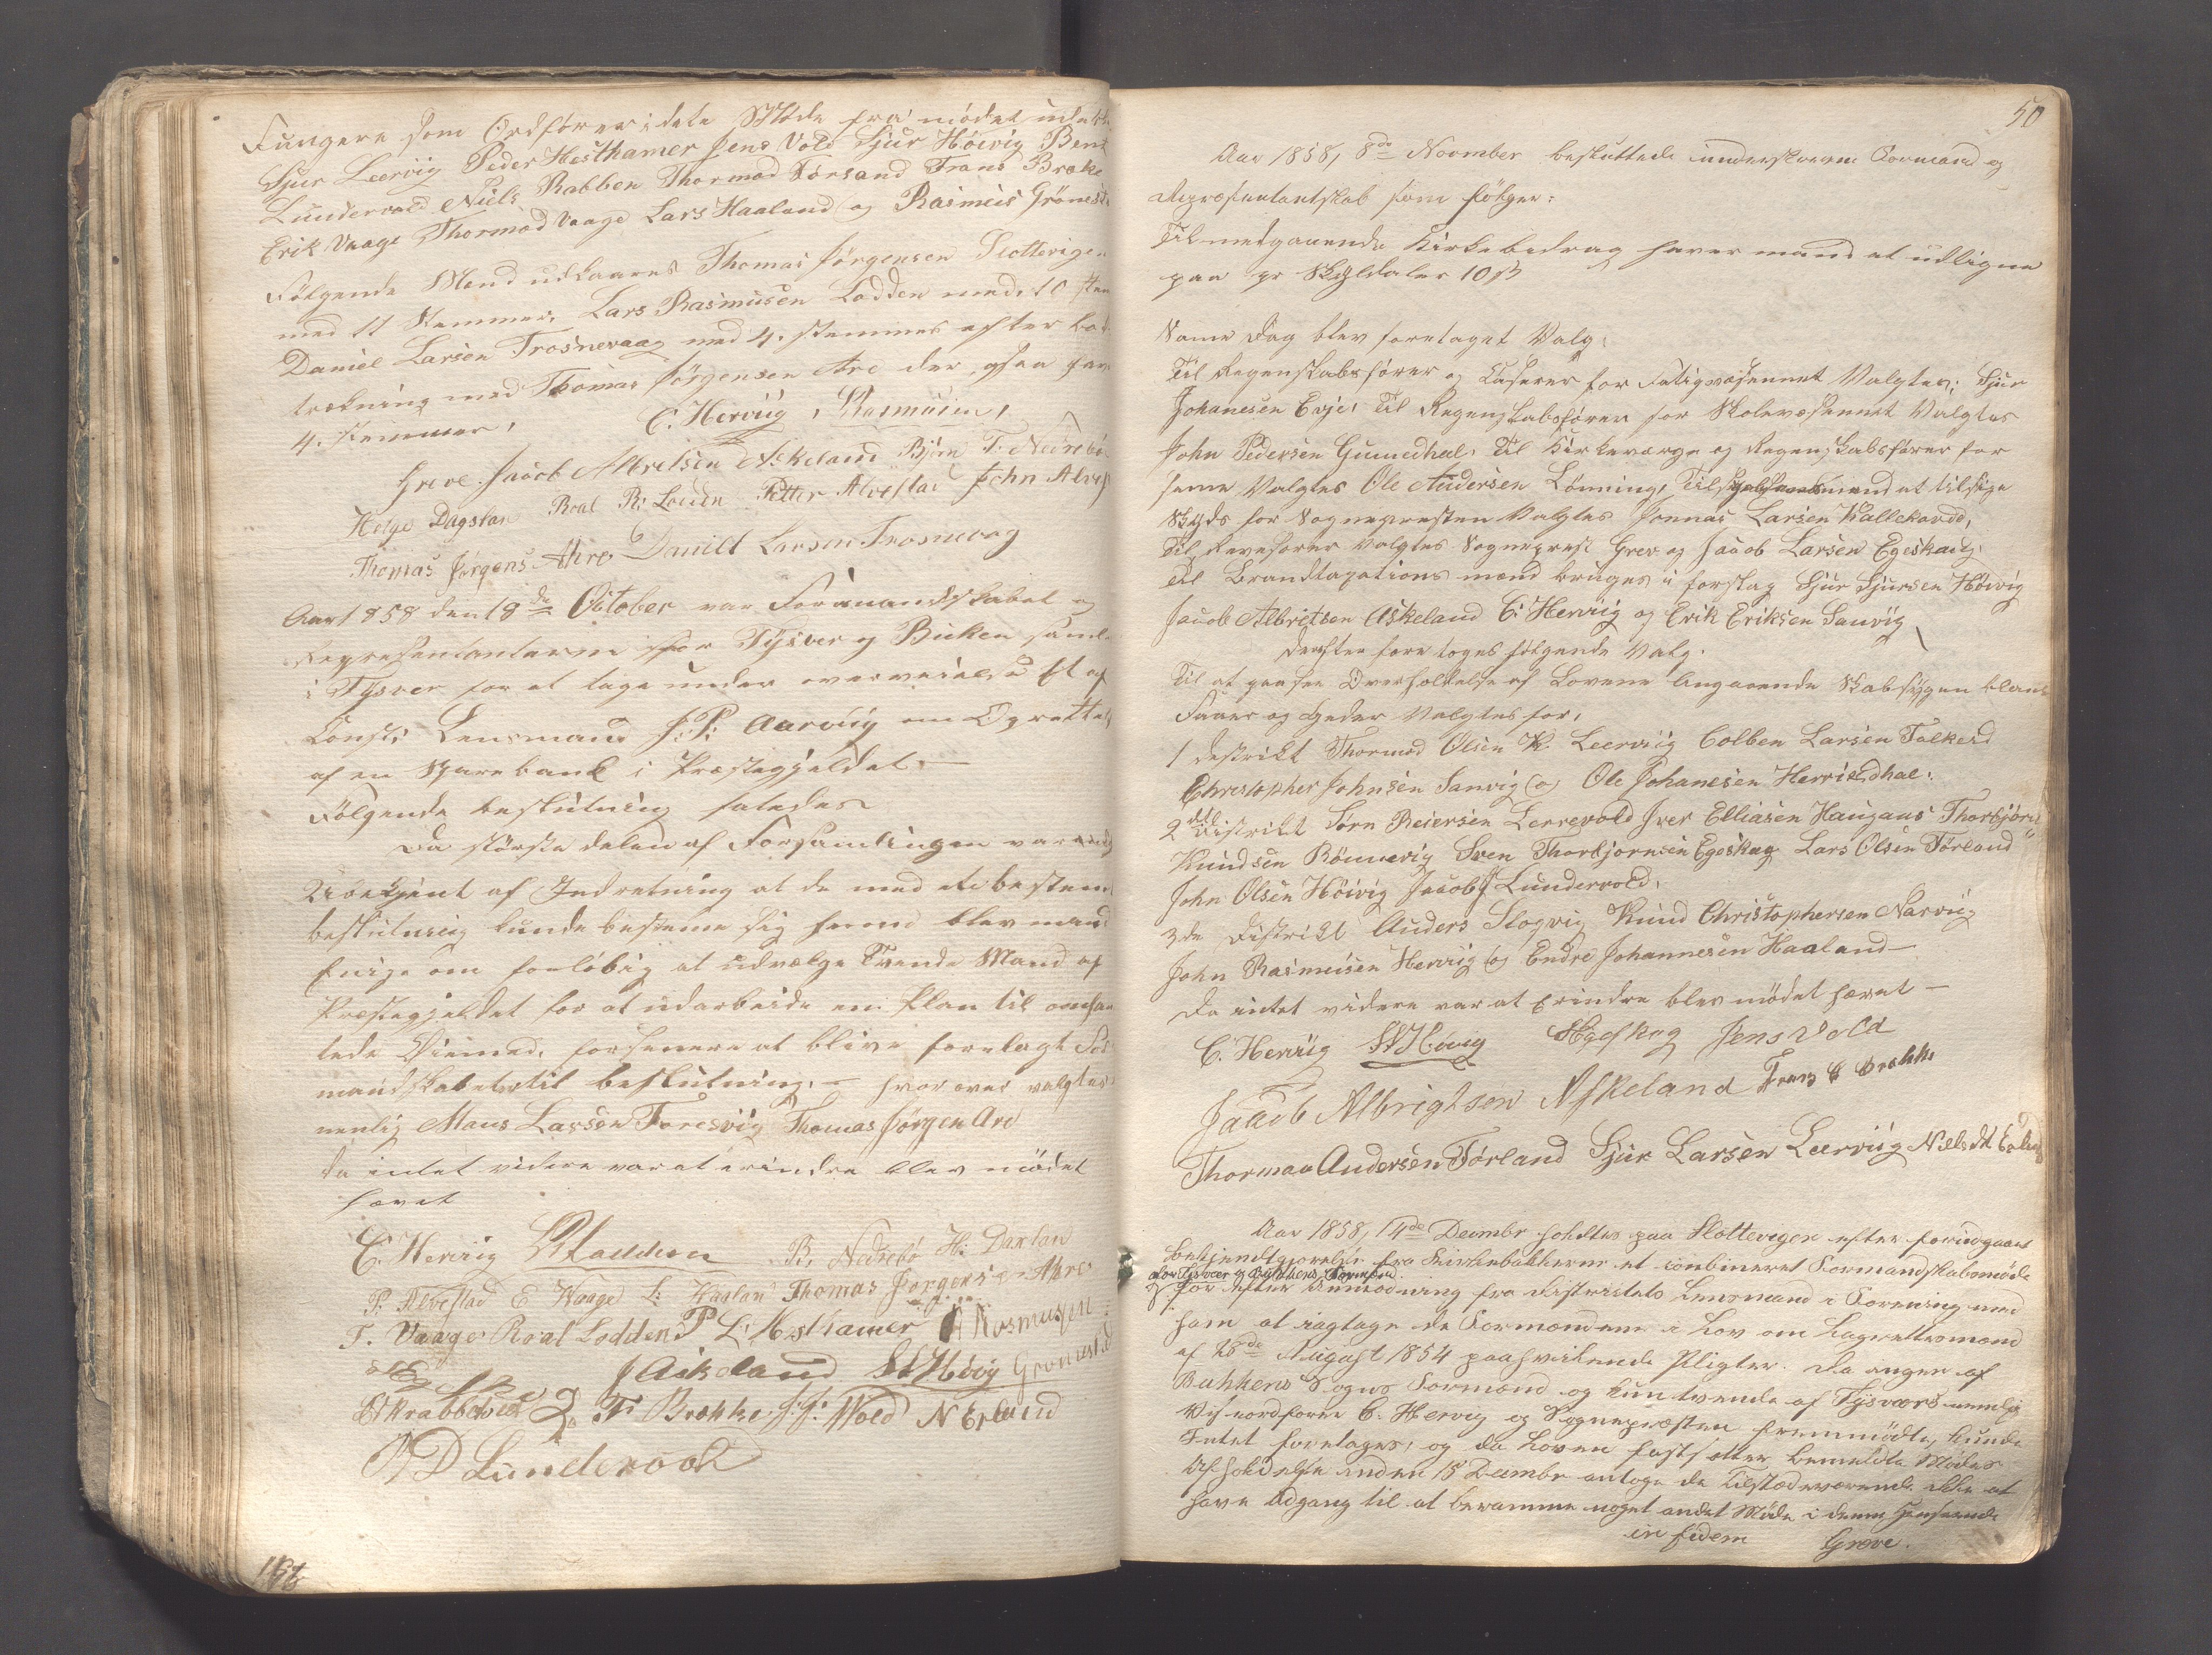 Fungere som Ordförer i dete Möde fra mödet
Sjur Leervig Peder Hesthamer Jens Vold Sjur Höivig Bent
Lundervold Niels Rabben Thormod Försand Frans Brække
Erik Vaage Thormod Vaage Lars Haaland og Rasmus Grönest
Fölgende Mend udkaares Thomas Jörgensen Slottevigen
med 11 Stemmer, Lars Rasmusen Lodden med 10 stem
Daniel Larsen Trosnevaag med 4. stemmer efter Lod
trekning med Thomas Jörgensen Are der ogsaa
4. stemmer,
C. Hervig, Rasmusen,
Greve Jacob Albretsen Askeland Björn T. Nedrebö
Helge Dagsland Roal R: Lodden Petter Alvestad John Alves
Thomas Jörgens Ahre Daniel Larsen Trosnevag
Aar 1858 den 18de October var Formandskabet og
Representanterne for Tysver og Bucken samle
i Tysver for at tage under overveielse af
Const: Lensmand J: P: Aarviig om Oprettels
af en Sparebank i Præstegjeldet. —
Fölgende beslutning fatedes
Da störste delen af Forsamlingen var
Ubekjent af Indretning at de med
beslutning kunde besteme sig herom blev mand
Enige om forlöbig at udvælge Tvende Mand af
Præstegjeldet for at udarbeide en Plan til omhan
lede Öiemed, forsenere at blive forelagt For
mandskabet til beslutning. — hvorover valgtes
nemlig Maus Larsen Foresvig Thomas Jörgen Are
da intet videre var at erindre blev mödet
hævet
C. Hervig R Ladden B. Nedrebö H: Daxlan
P. Alvestad E Waage L: Haalan Thomas Jörgensen Ahre
T. Vaage Roal Lodden P L: Hesthamer A Rasmusen
J Askeland SS Höivig Gronnestad
F: Brække J: J: Wold N Erland
B D Lundervold
50
Aar 1858, 8de November besluttede underskrevne Formand og
Repræsentantskab som fölger:
Til medgaaende Kirkebedrag haver mand at udligne
paa pr Skyldaler 10 ß
Same Dag blev foretaget Valg:
Til Regenskabsförer og Caserer for Fatigvæsennet Valgtes: Sjur
Johanesen Erje, Til Regenskabsförer for Skolevæsennet Valgtes
John Pedersen Gunnedhal, Til Kirkeværge og Regenskabsförer for
same Valgtes Ole Andersen Lönning, Til mend at tilsige
Skyds for Sogneprestin Valgtes Jonnas Larsen Kallekodt,
Til Revesorer Valgtes Sogneprest Grev og Jacob Larsen Egeskaug,
Til Brandtaxations mend bruges i forslag Sjur Sjursen Höivig
Jacob Albritsen Askeland C: Herviig og Erik Eriksen Sanviig
Derefter fore toges fölgende Valg.
Til at paasee Overholdelse af Lovene Angaaende Skabsygen blant
Faarer og Geder Valgtes for,
1 destrikt Thormod Olsen N. Leerviig Colben Larsen Falkeid
Christopher Johnsen Sanvig og Ole Johanesen Hervikdhal:
2det Distrikt Sörn Reiersen Lerrevold Iver Elliasen Haugans Thorbjörn
Knudsen Rönnevig Sven Thorbjornsen Egeskog Lars Olsen Förland
John Olsen Höivig Jacob J Lundervold,
3de Distrikt Anders Slogvig Knud Christophersen Narviig
John Rasmusen Hervig og Endre Johannesen Haaland —
Da intet videre var at Erindre blev mödet hævet —
C. Herviig SS Höivig Jens Vold
Jaacob Albrightson Askeland Frans E Brække
Thormaa Andersen Förland Sjur Larsen Leerviig Niels
Aar 1858, 14de Decembr holdtes paa Slottevigen efter foregaaende
Bekjendtgjörelse fra Kirkebakkerne et combineret Formandskabsmöde
for Tysvær og Bukkens Formænd
for efter Anmodning fra Distriktets Lensmand i Forening med
ham at iagtage de Formændene i Lov om Lagrettesmænd
af 28de August 1854 paahvilende Pligter. Da ingen af
Bukkens Sogns Formænd og kun tvende af Tysværs nemlig
Viseordförer C. Hervig og Sognepræsten fremmödte, kunde
Intet foretages, og da Loven fastsetter bemeldte Mödes
Afholdelse inden 15 Decembr antoge de Tilstædeværende ikke at
have Adgang til at beramme noget andet Möde i denne Henseende
in fidem Greve.